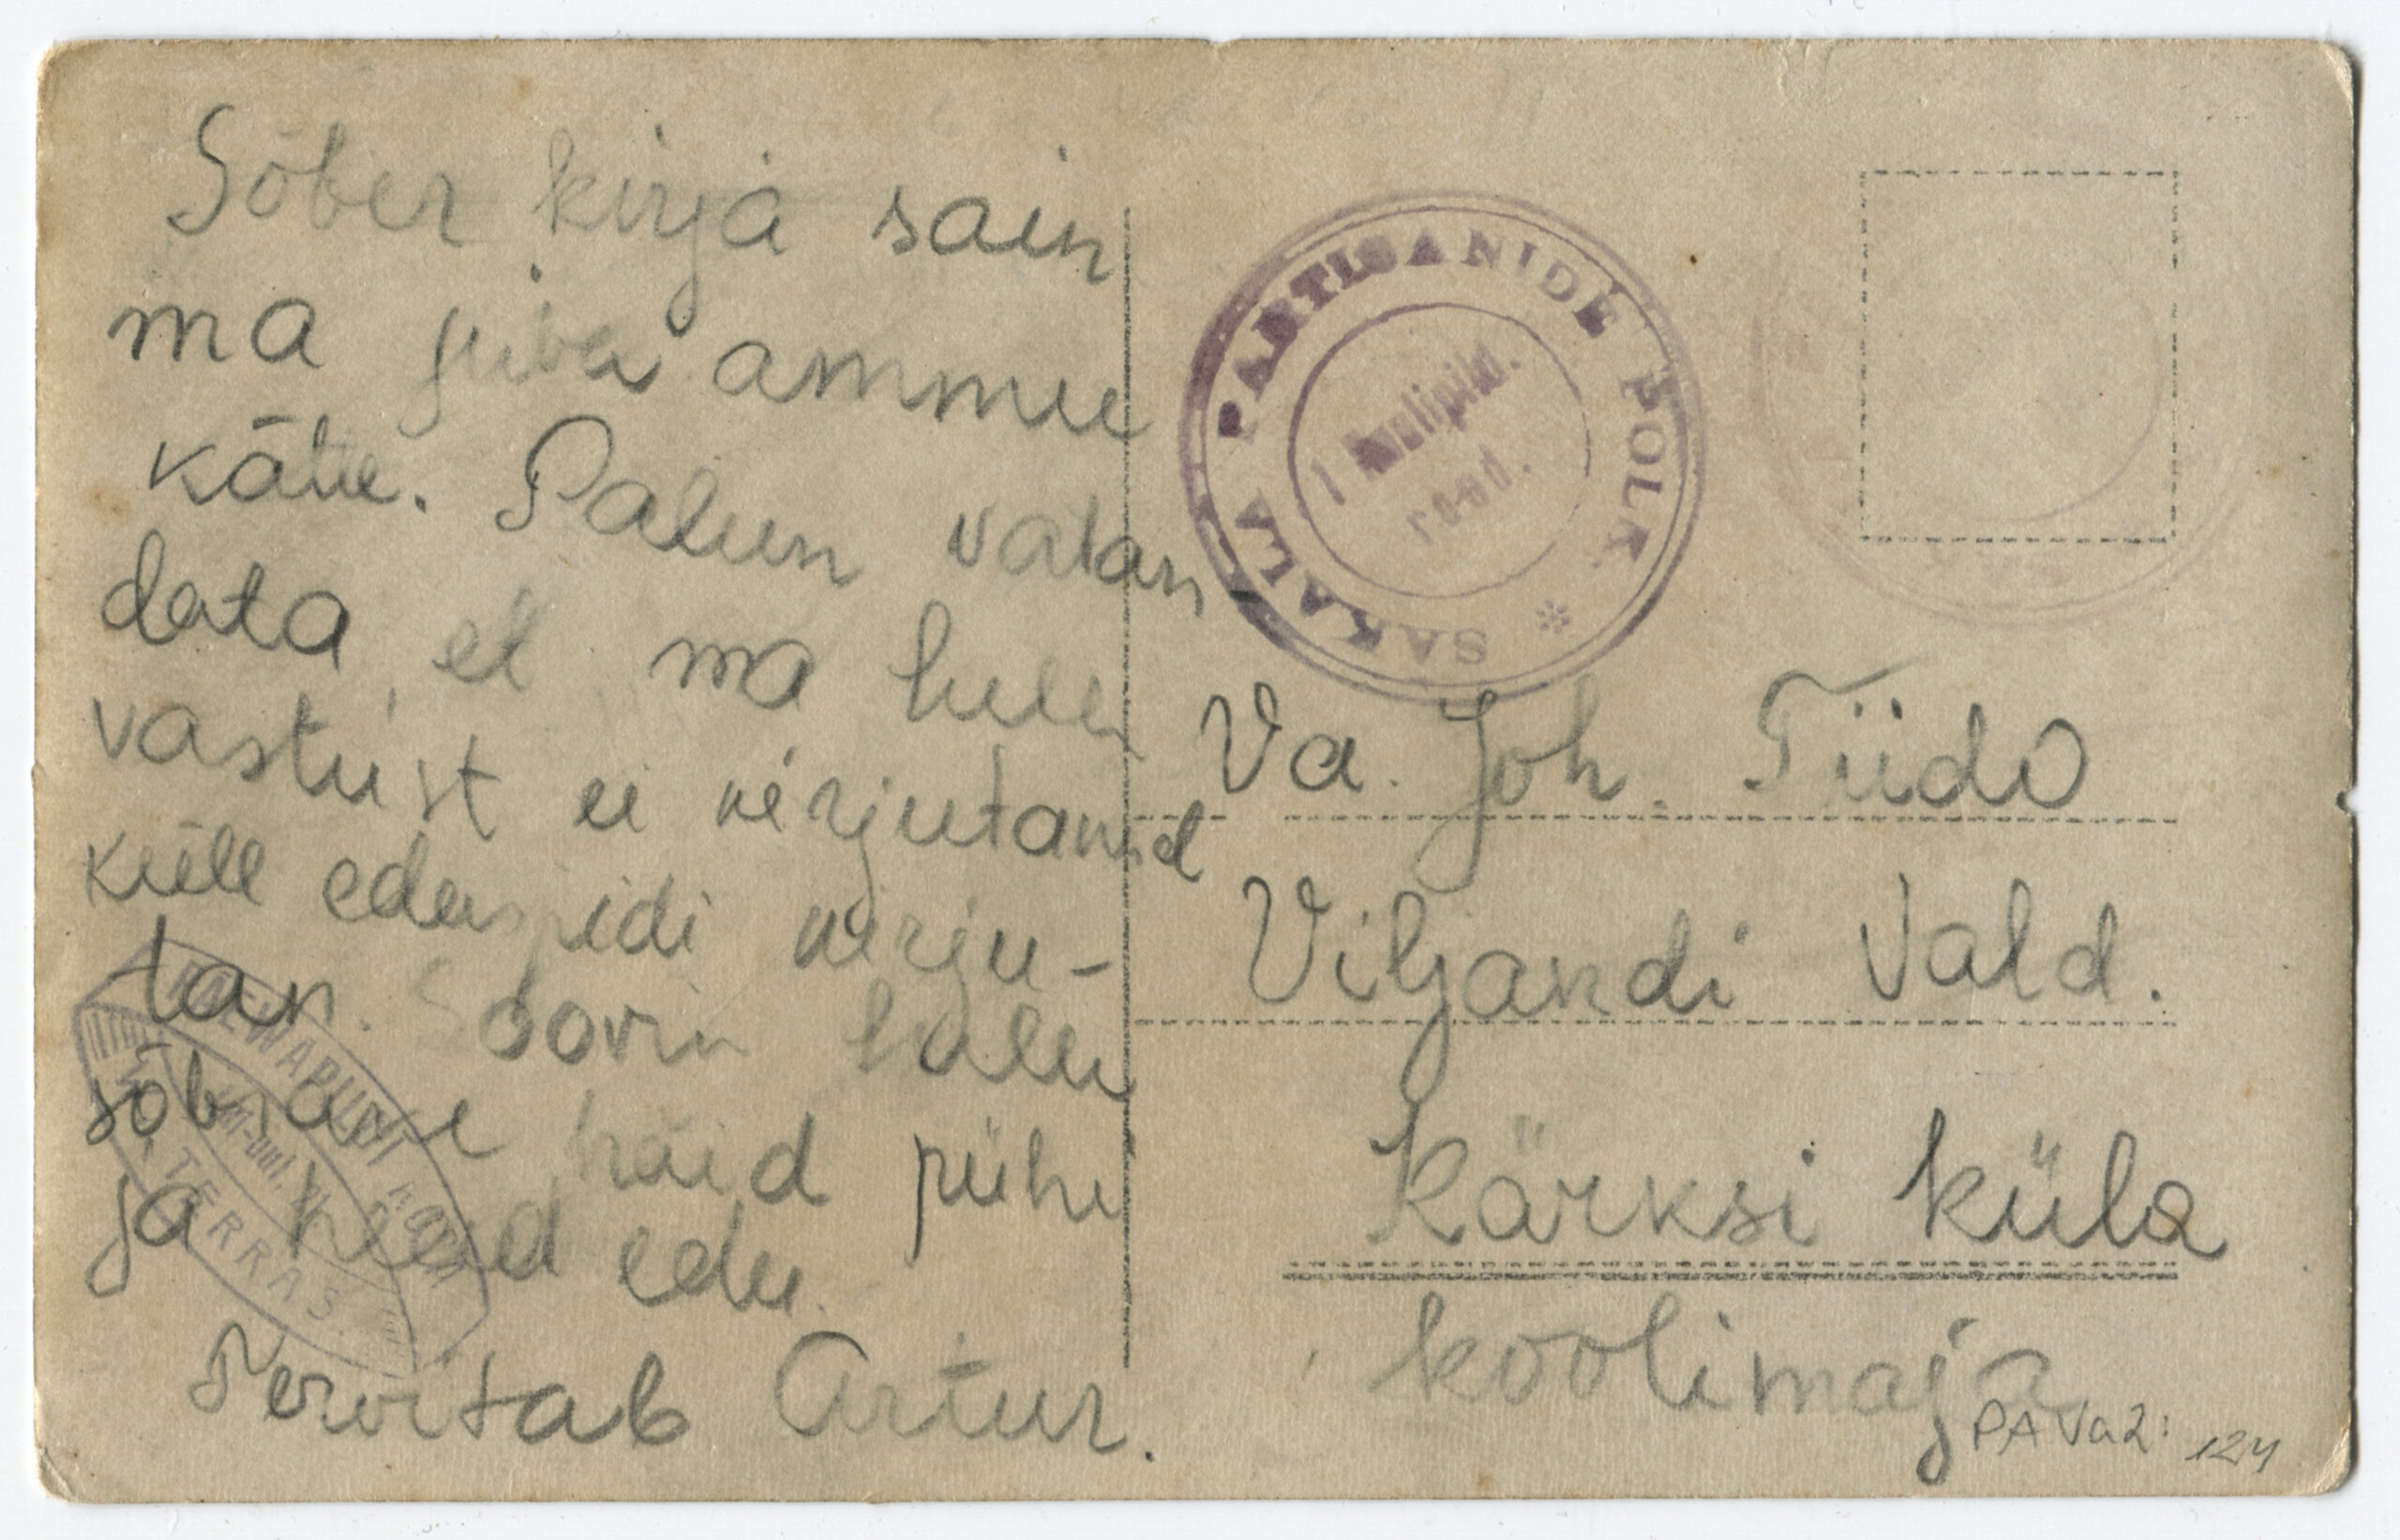 Sõber kirja sain
ma juba ammu
kätte. Palun vaban
data, et ma sulle
vastust ei kirjutanud
küll edaspidi kirju-
tan. Soovin sulle
sõbrase häid pühi
ja head edu.
Tervitab Artur.
SAKALA PARTISANIDE POLK
1 Kuulipild.
rood.
PAEWAPILDI
TERRAS.
Va. Joh. Tiido
Viljandi Vald.
Kärksi küla
koolimaja
PA Va2: 124